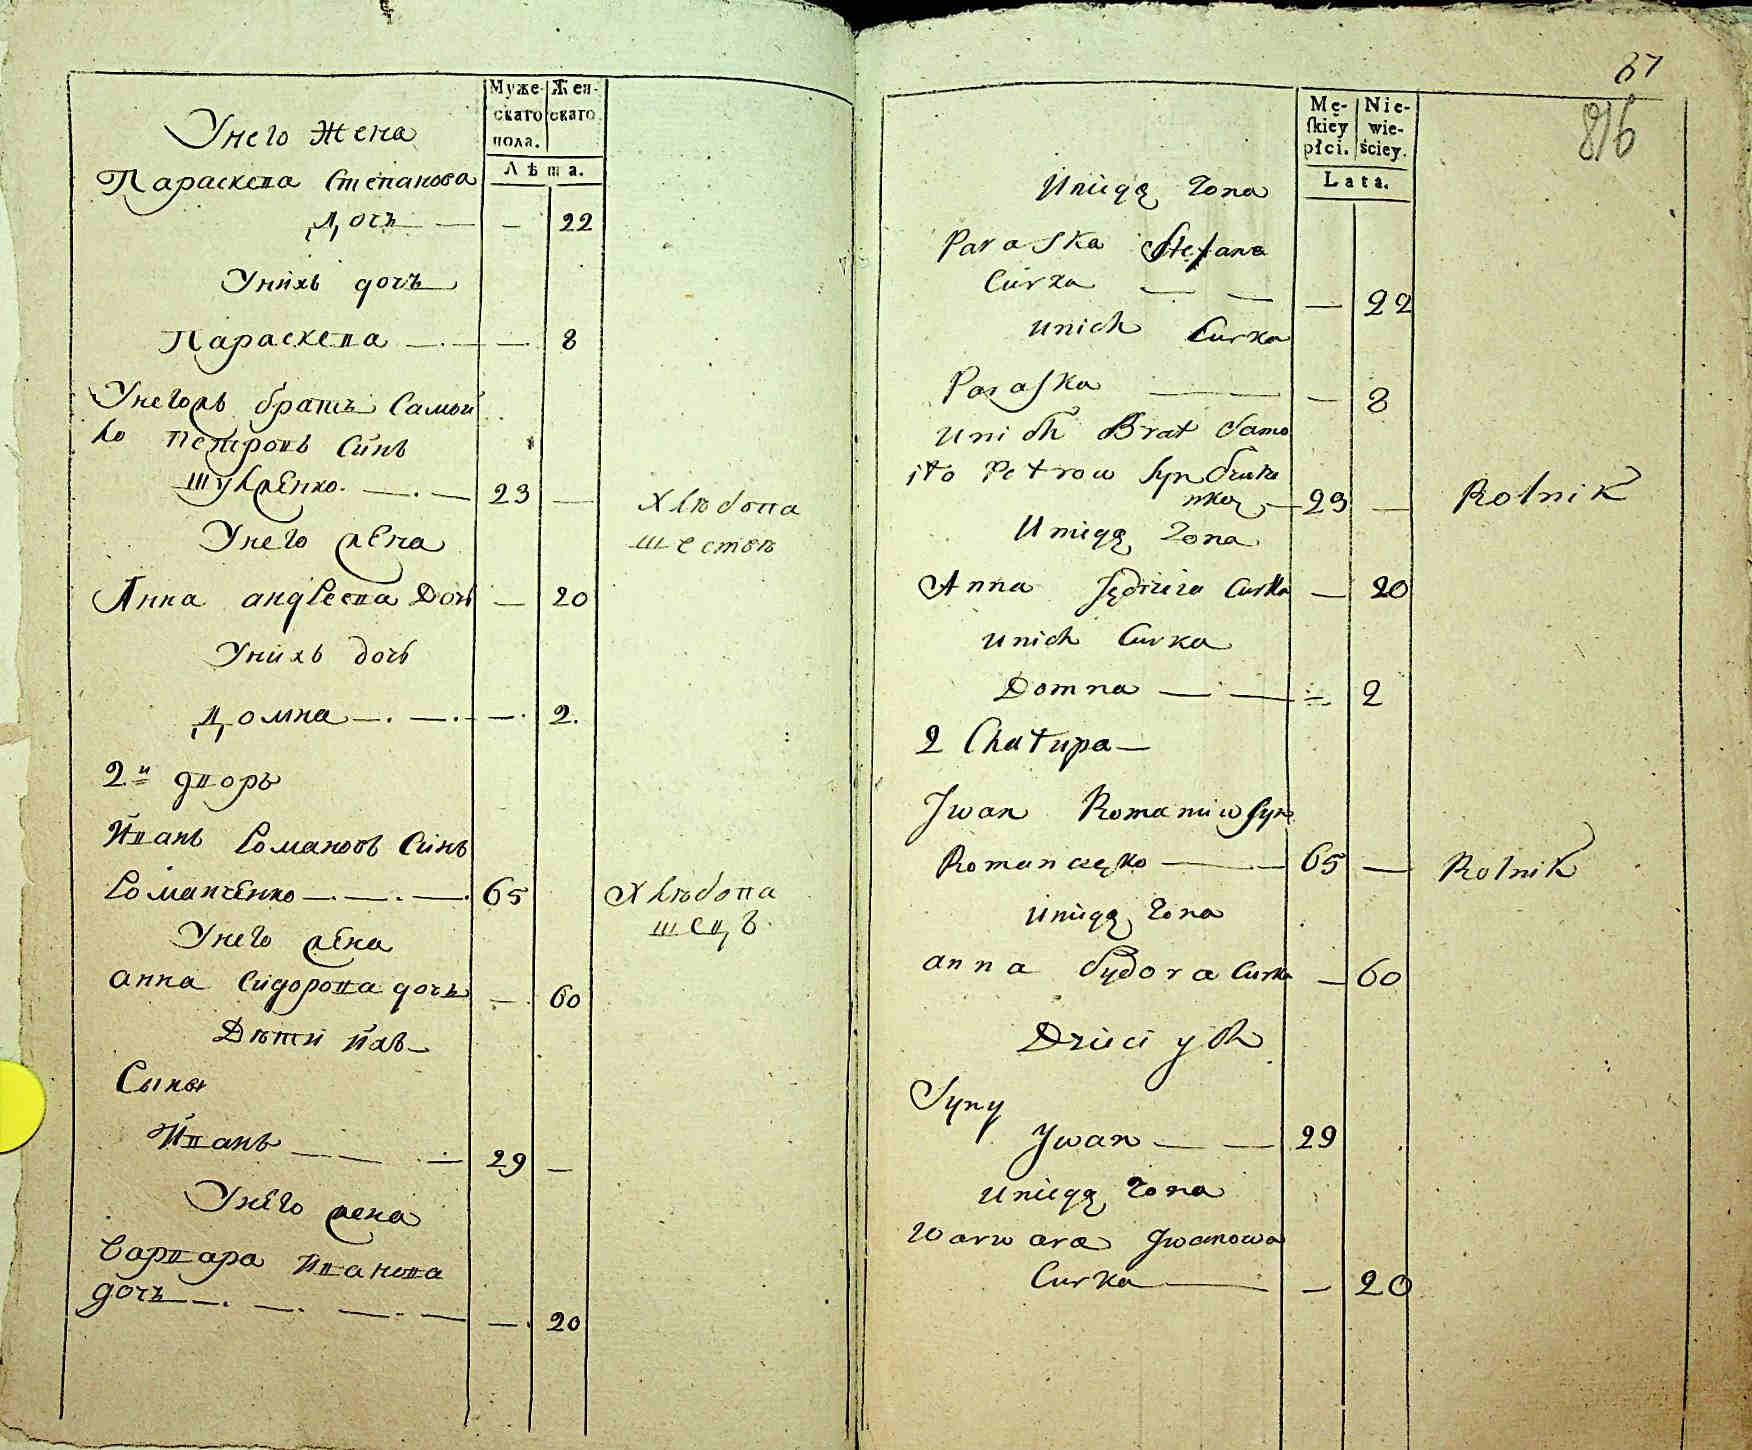 Муже-
скаго
пола.
Жен-
скаго
Лѣта.
Унего Жена
Параскева Степанова
Дочь — — 22
Унихъ дочъ
Параскева — — 8
Унегожъ братъ Самой
ло Петровъ Синъ
23 —
Хлѣбопа
шество
Унего жена
Анна андреева Дочъ — 20
Унихъ дочь
Домна — — — 2.
2й дворъ
Иванъ Романовъ Синъ
Романченко — — 65
Хлѣбопа
шецъ
Унего жена
анна Сидорова дочъ — 60
Дѣти ихъ
Сыны
Иванъ — — 29 —
Унего жена
Варвара Иванова
дочъ — — — — 20
67
816
Mę-
ſkiey
płci.
Nie-
wie-
ściey.
Lata.
Uniegą Zona
Paraska Stefana
Curka — — — 22
unich Curka
Paraſka — — — 8
unich Brat Samo
iło Petrow Syn
— 23 — Rolnik
Uniegą Zona
Anna Jędrzeia Curka — 20
unich Curka
Domna — — — 2
2 Chałupa —
Jwan Romaniw Syn
Romanczęko — 65 — Rolnik
Uniegą Zona
anna Sydora Curka — 60
Dzieci ych
Syny
Jwan — — 29
Uniegą Zona
Warwara Jwanowa
Curka — — 20